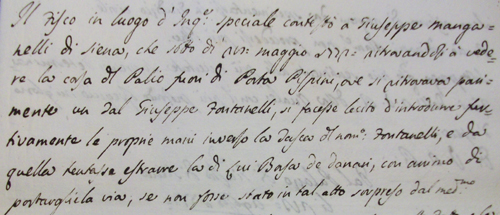 Il Fisco in luogo d'Inq.e speciale cont.o tò a Giuseppe manga=
nelli di Siena, che sotto dì maggio ritrovandosi à vede=
re la corsa dl Palio fuori di Porta Pispini, ove si ritrovava pari=
mente un dal Giuseppe Fontanelli, si facesse lecito d'introdurre fur=
tivamente le proprie mani inverso la Tasca dl nom.o Fontanelli, e da
quella tentasse estrarre la di lui Borsa de Denari, con animo di
portargliela via, se non fosse stato in tal atto sorpreso dal med.mo